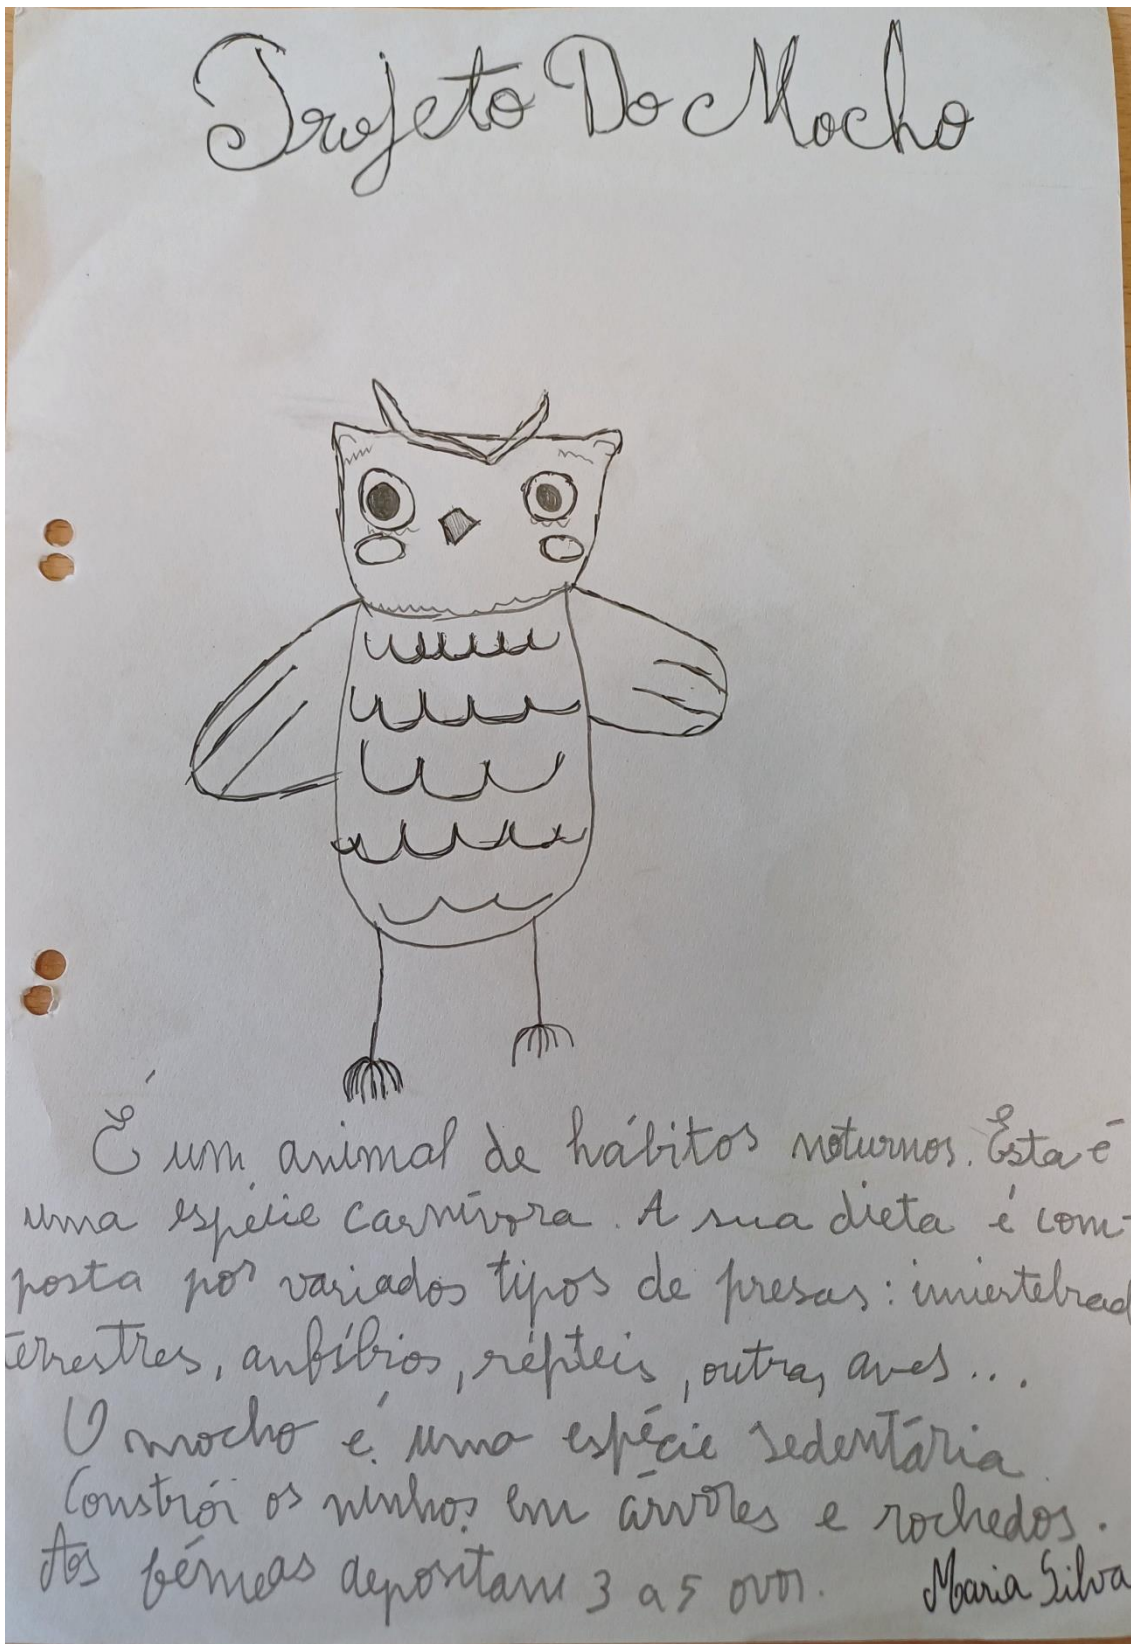 Projeto Do Mocho
É um animal de hábitos noturnos. Esta é
uma espécie carnívora. A sua dieta é com-
posta por variados tipos de presas: invertebrad
terrestres, anfíbios, répteis, outras aves...
O mocho é uma espécie sedentária.
Constrói os ninhos em árvores e rochedos.
As fêmeas depositam 3 a 5 ovos.
Maria Silva